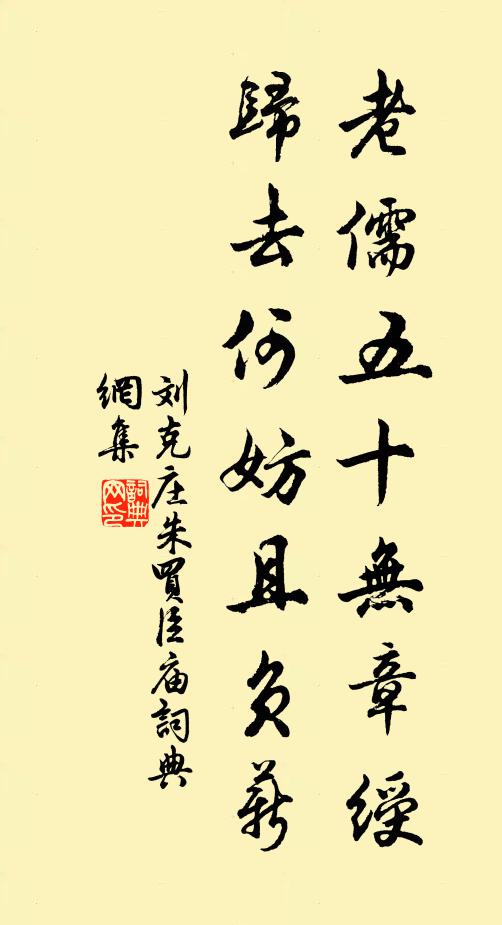 老儒五十無章綬
歸去何妨且负薪
刘克庄朱買臣庙詞典
網集
詞典網印